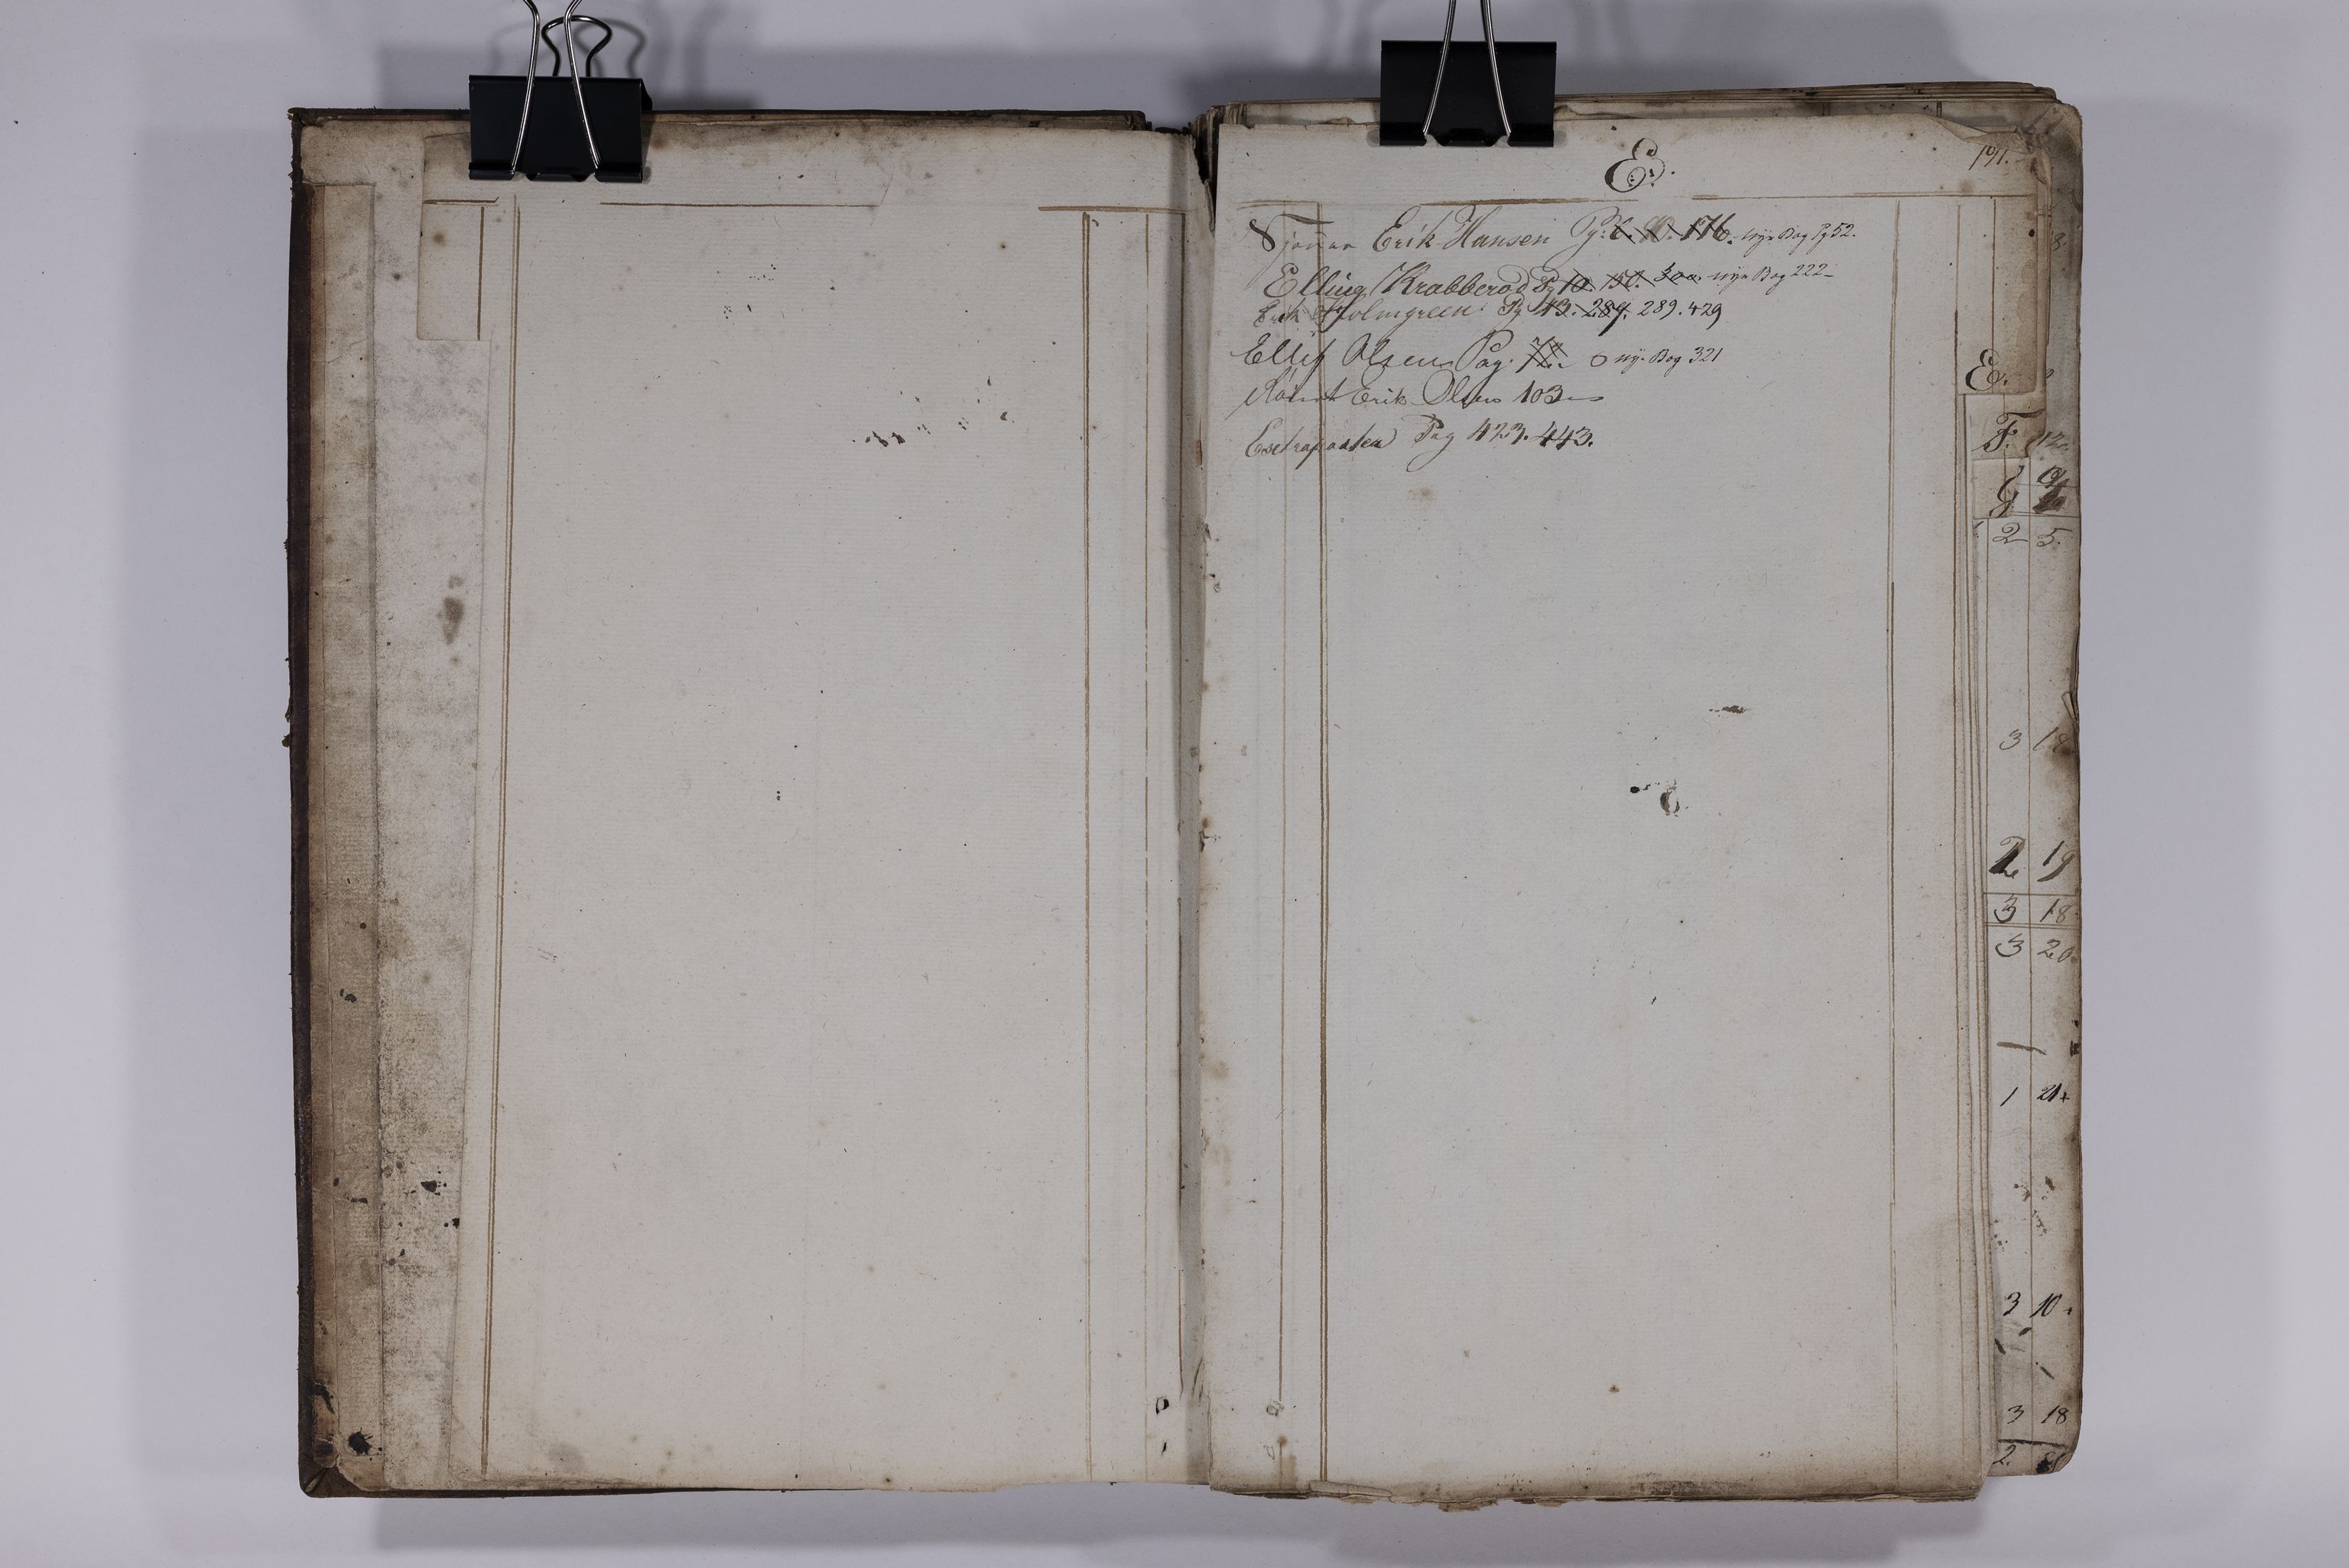 E.
191.
Erik Hansen Pg: 6. 90. 176. nye Bog Pg 52.
Elling Krabberød Pg 10. 150. 300. nye Bog 222
Erik Holmgreen Pg 43. 289. 289. 429
Ellef Olsen Pag. 72. ny. Bog 321
Erik Olsen 103
Extraposten Pag 423. 443.
E.
F.
G
2 5.
3 18
2 19
3 18
3 20
1 21
3 10
3 18
2.